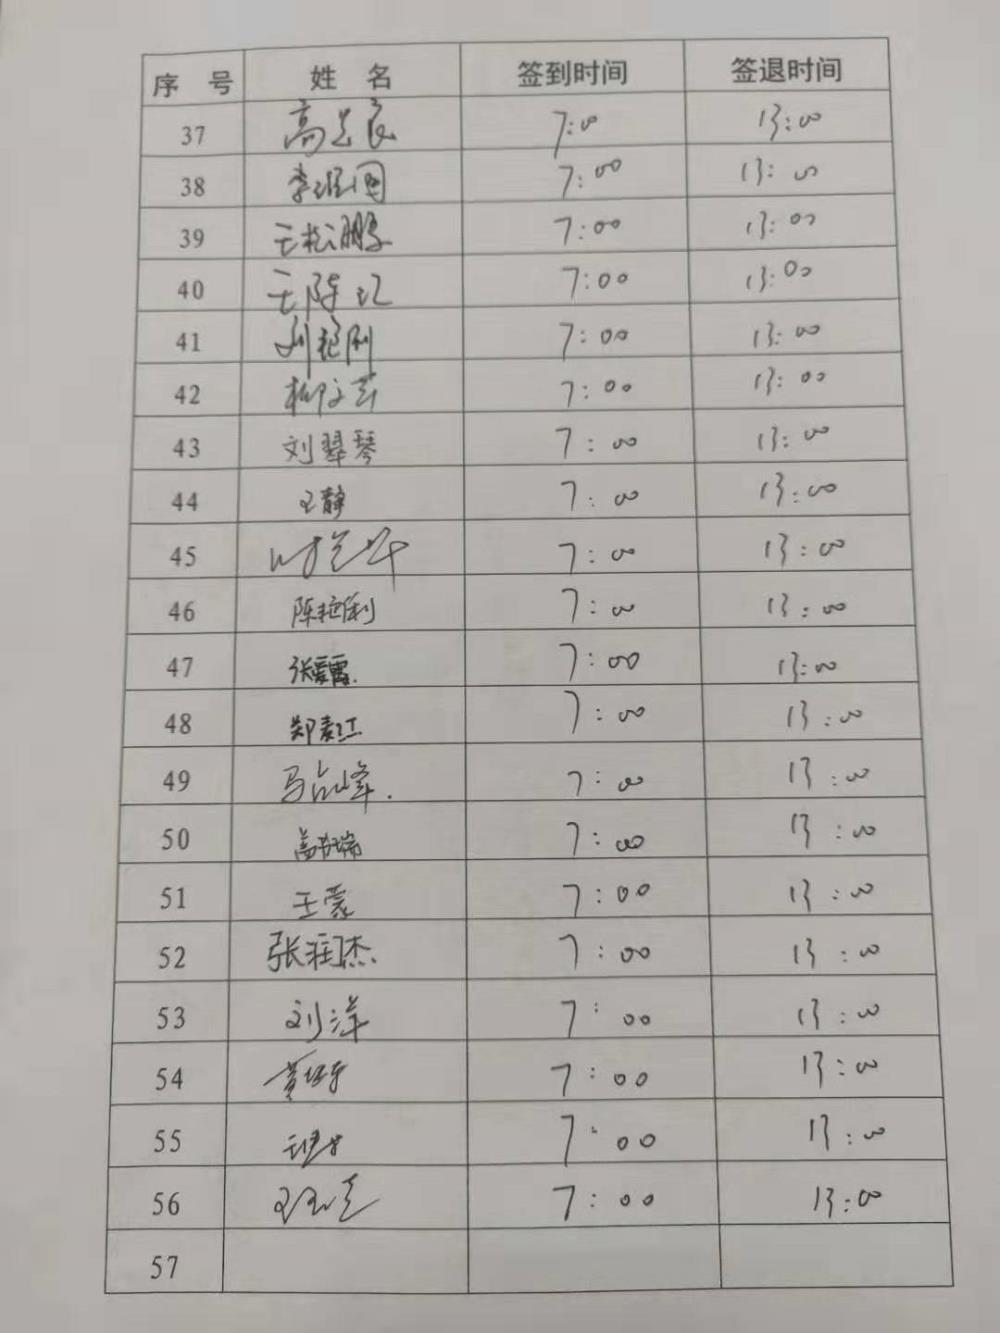 序 号 姓 名 签到时间 签退时间
37 高 良 7:00 13:00
38 李 国 7:00 13:00
39 王松鹏 7:00 13:00
40 王陈 7:00 13:00
41 刘艳刚 7:00 13:00
42 柳文 7:00 13:00
43 刘翠琴 7:00 13:00
44 王静 7:00 13:00
45 7:00 13:00
46 陈艳利 7:00 13:00
47 张爱霞 7:00 13:00
48 郑素江 7:00 13:00
49 马占峰. 7:00 13:00
50 瑞 7:00 13:00
51 王蒙 7:00 13:00
52 张润杰 7:00 13:00
53 刘洋 7:00 13:00
54 7:00 13:00
55 7:00 13:00
56 7:00 13:00
57